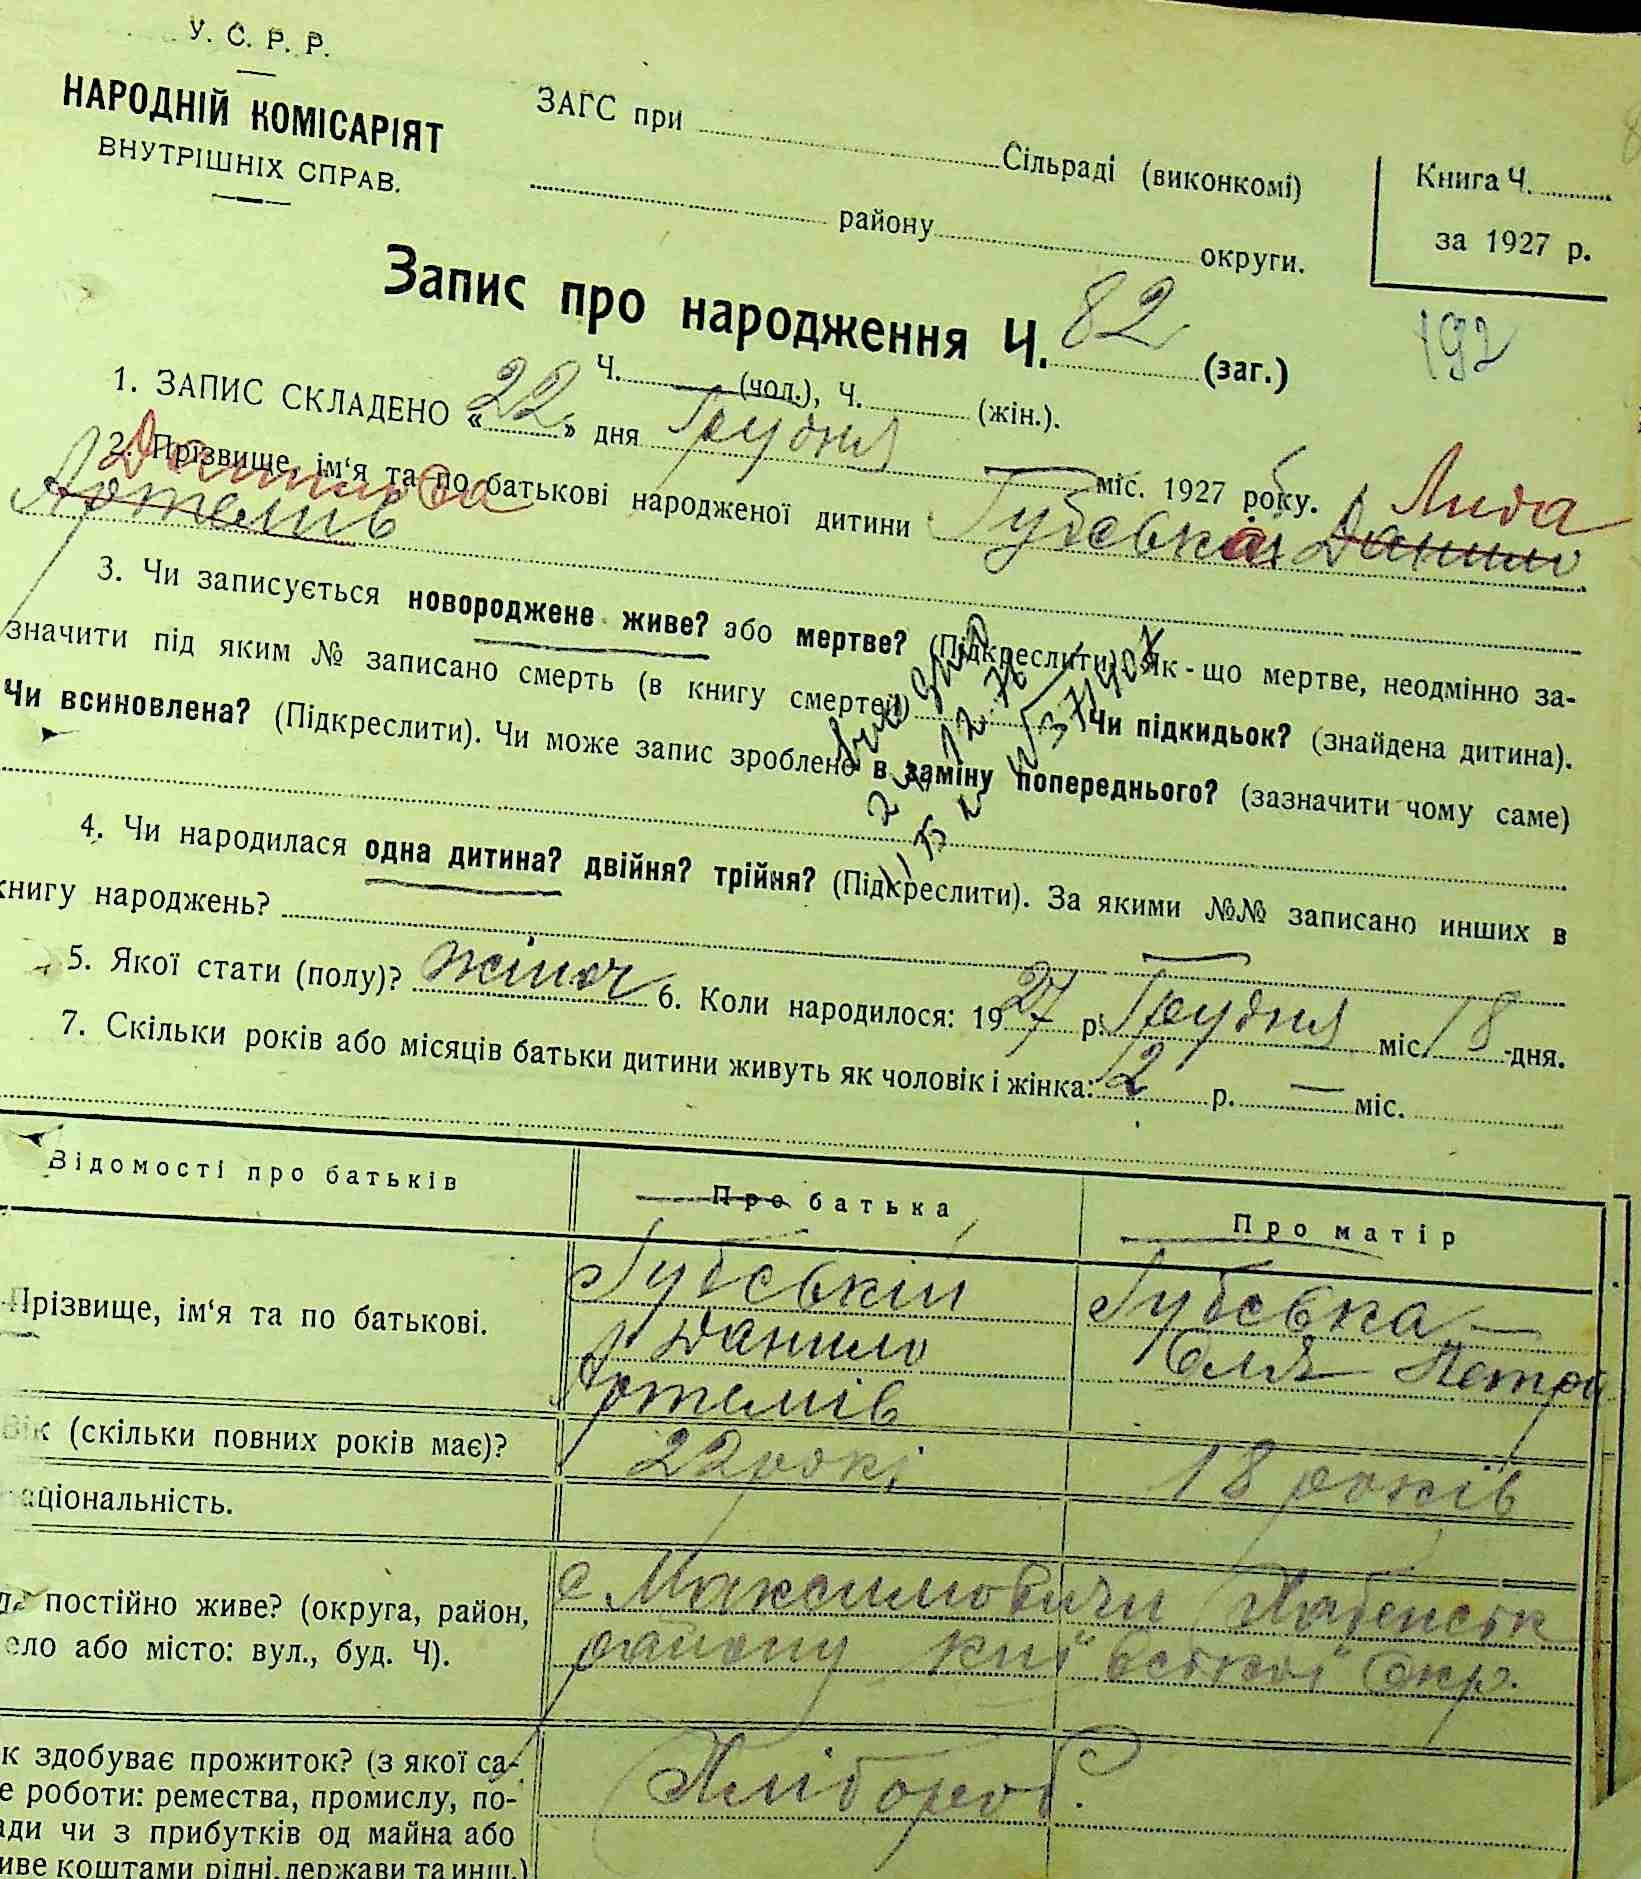 У. С. Р. Р.
НАРОДНІЙ КОМІСАРІЯТ
ВНУТРІШНІХ СПРАВ.
ЗАГС при
Сільраді (виконкомі)
району округи.
Книга Ч.
за 1927 р.
Запис про народження Ч. 82 (заг.)
192
Ч. (чол.), Ч. (жін.).
1. ЗАПИС СКЛАДЕНО «22» дня Грудня міс. 1927 року.
2. Прізвище, ім‘я та по батькові народженої дитини Губська Данило Лида
Артемів Данилова
3. Чи записується новороджене живе? або мертве? (Підкреслити). Як-що мертве, неодмінно за-
значити під яким № записано смерть (в книгу смертей) Чи підкидьок? (знайдена дитина).
Чи всиновлена? (Підкреслити). Чи може запис зроблено в заміну попереднього? (зазначити чому саме)
4. Чи народилася одна дитина? двійня? трійня? (Підкреслити). За якими №№ записано инших в
книгу народжень?
5. Якої стати (полу)? жіноч 6. Коли народилося: 1927 р. Грудня міс. 18 дня.
7. Скільки років або місяців батьки дитини живуть як чоловік і жінка: 2 р. — міс.
Відомості про батьків Про батька Про матір
Прізвище, ім‘я та по батькові.
Губський Губська
Данило Оля Петри
Артемів
Вік (скільки повних років має)? 22 рокі 18 років
національність.
де постійно живе? (округа, район,
село або місто: вул., буд. Ч).
с Максимовичи Хабенськ
району Київської Окр.
як здобуває прожиток? (з якої са-
ме роботи: ремества, промислу, по-
сади чи з прибутків од майна або
живе коштами рідні, держави та инш.)
Хлібороб.